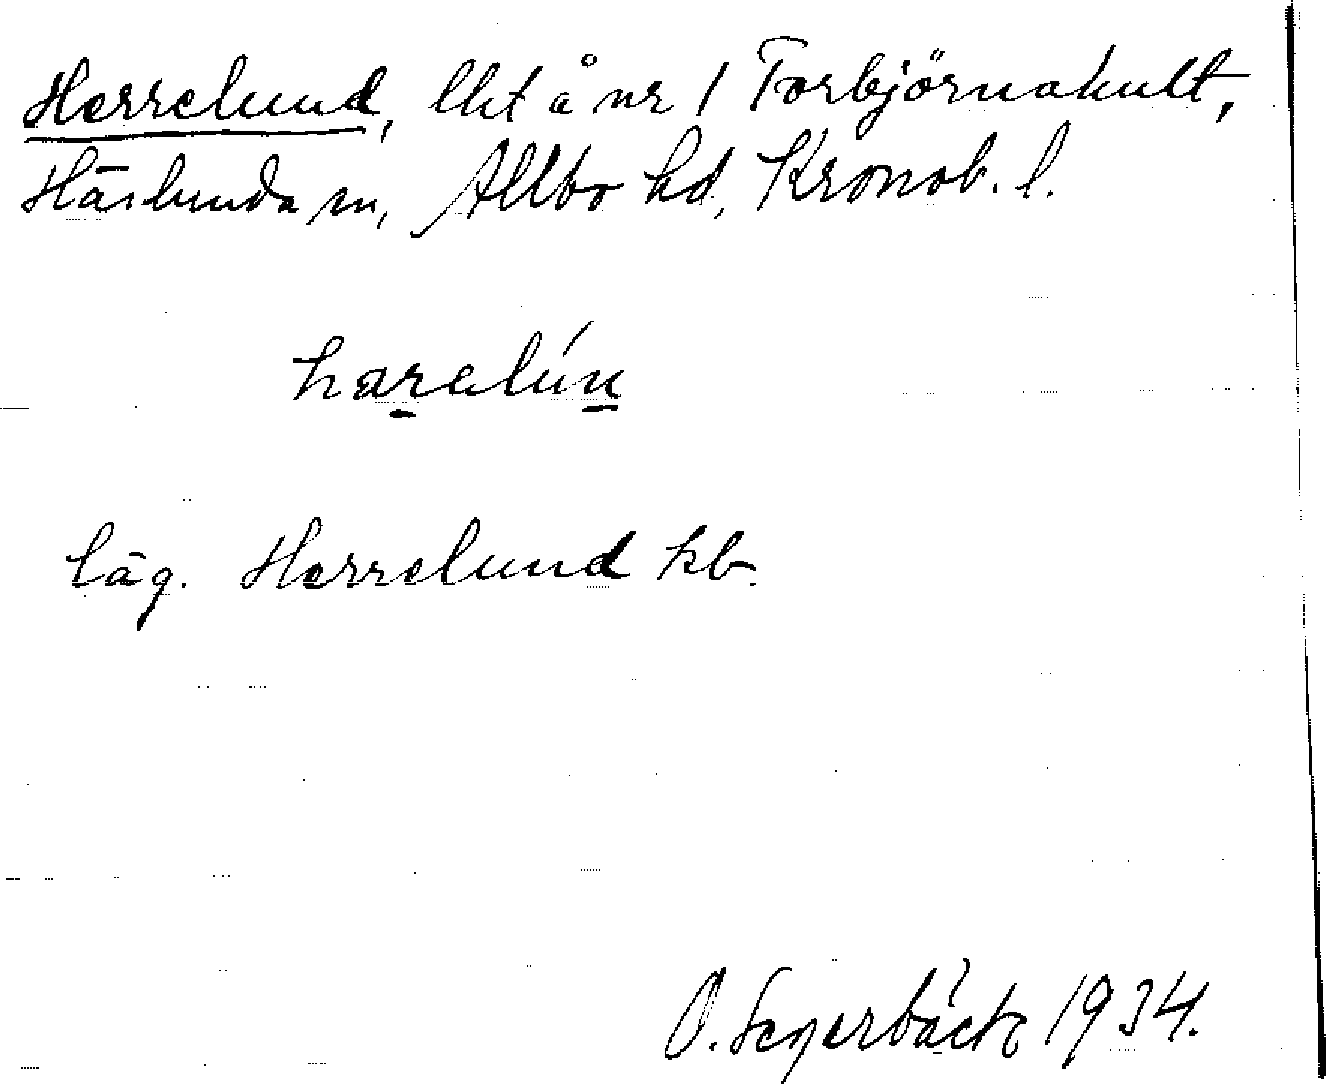 Herrelund, lht å nr 1 Torbjörnakult,
Härlunda sn, Allbo hd, Kronob. l.
haralún
läg. Herrelund kb.
O. Segerbäck 1934.